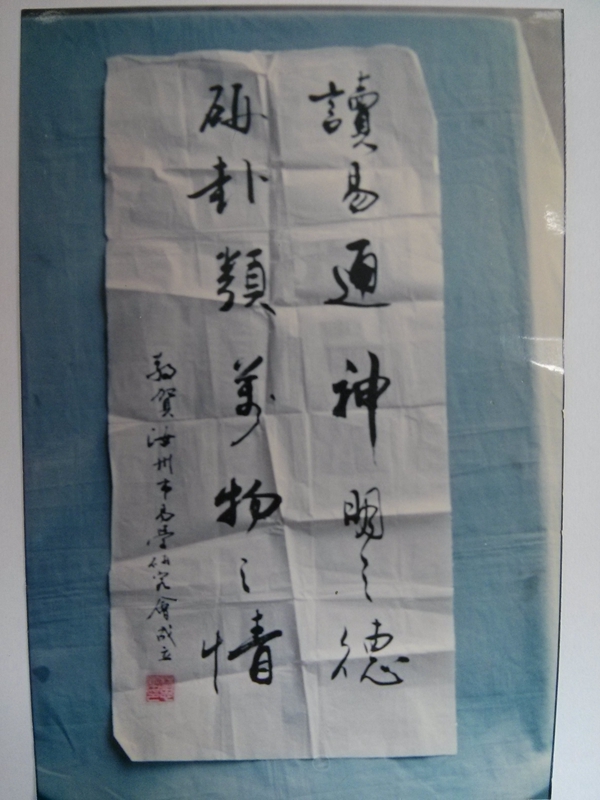 讀易通神明之德
研卦類萬物之情
敬賀汝州市易學研究會成立